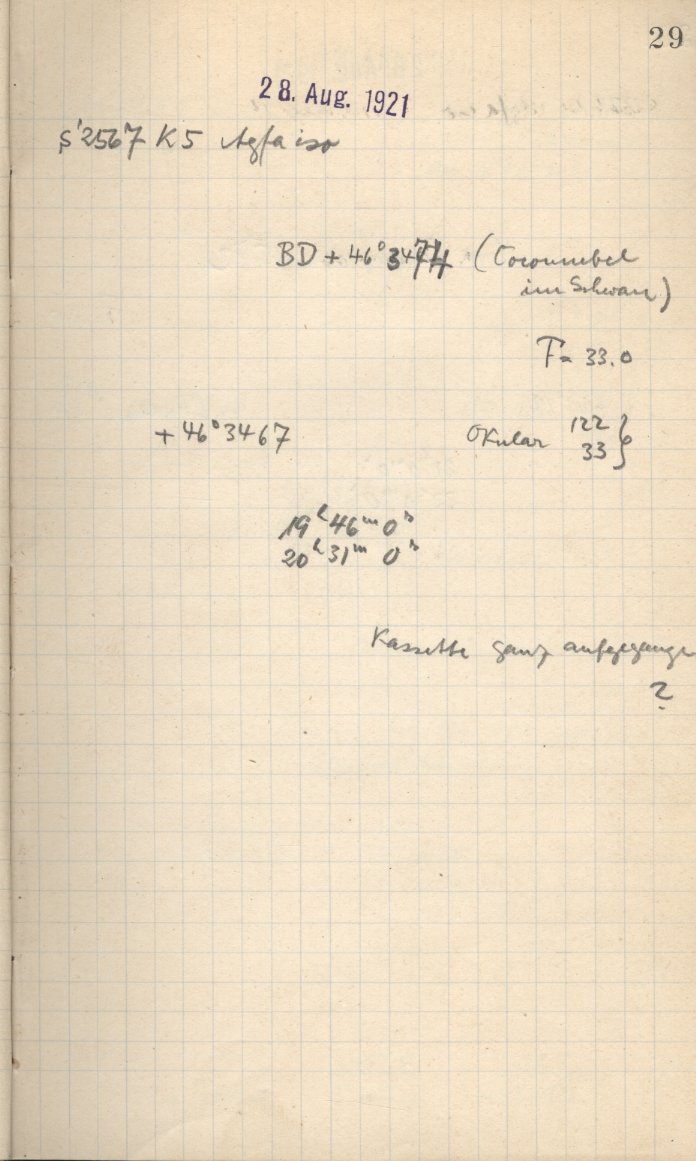 29
28. Aug. 1921
S'2567 K5 Agfa iso
BD + 46° 3474 (Coconnebel
im Schwan)
F = 33.0
+ 46° 3467
Okular 122 }
33
19h 46m 0s
20h 31m 0s
Kassette ganz aufgegangen
?